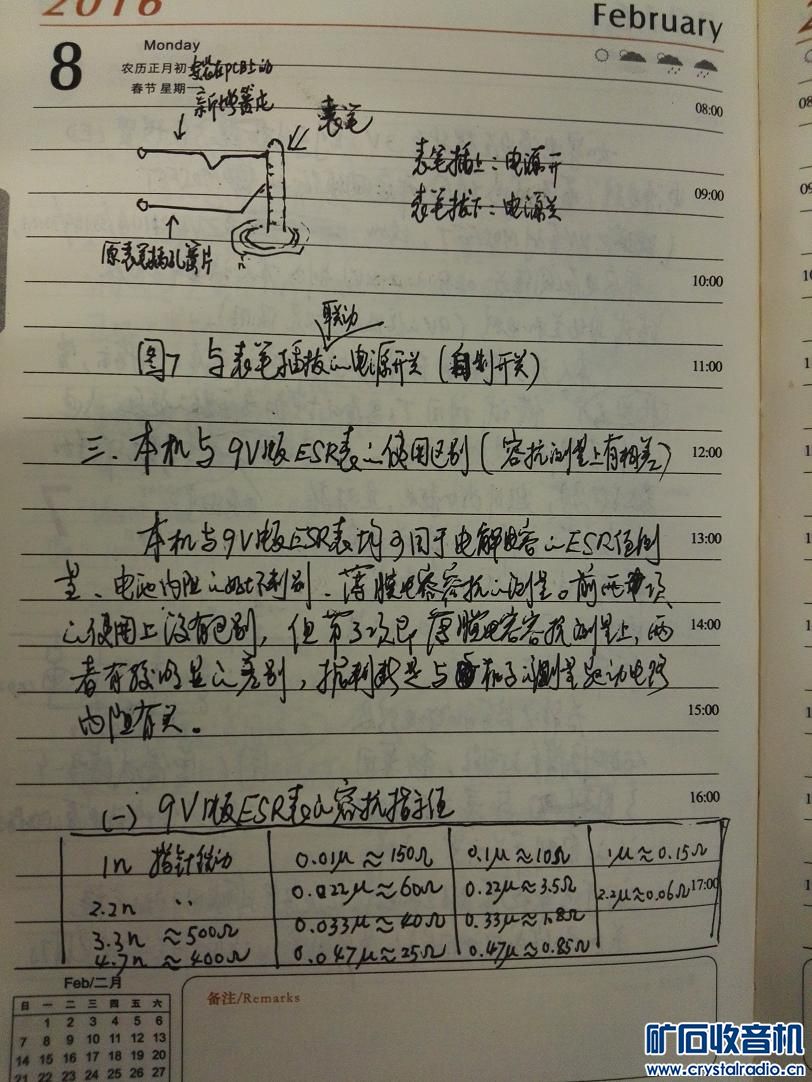 2016
February
8
Monday
农历正月初一
春节 星期一
安装在PCB上的
新增簧片
表笔
08:00
表笔插上：电源开
表笔拔下：电源关
09:00
原表笔插孔簧片
10:00
联动
图7 与表笔插拔的电源开关（自制开关）
11:00
三、本机与9V版ESR表的使用区别（容抗测量上有相差）
12:00
本机与9V版ESR表均可用于电解电容的ESR值测
13:00
量、电池内阻的好坏判别、薄膜电容容抗的测量。前两项
的使用上没有区别，但第3项即薄膜电容容抗测量上，两
14:00
者有较明显的差别，据判断是与机子的测量驱动电路
内阻有关。
15:00
(一) 9V版ESR表的容抗指示值
16:00
1n 指针微动 0.01μ≈150Ω 0.1μ≈10Ω 1μ≈0.15Ω
2.2n 〃 0.022μ≈60Ω 0.22μ≈3.5Ω 2.2μ≈0.06Ω
17:00
3.3n ≈500Ω 0.033μ≈40Ω 0.33μ≈1.8Ω
4.7n ≈400Ω 0.047μ≈25Ω 0.47μ≈0.85Ω
Feb/二月
日 一 二 三 四 五 六
1 2 3 4 5 6
7 8 9 10 11 12 13
14 15 16 17 18 19 20
21 22 23 24 25 26 27
备注/Remarks
矿石收音机
www.crystalradio.cn